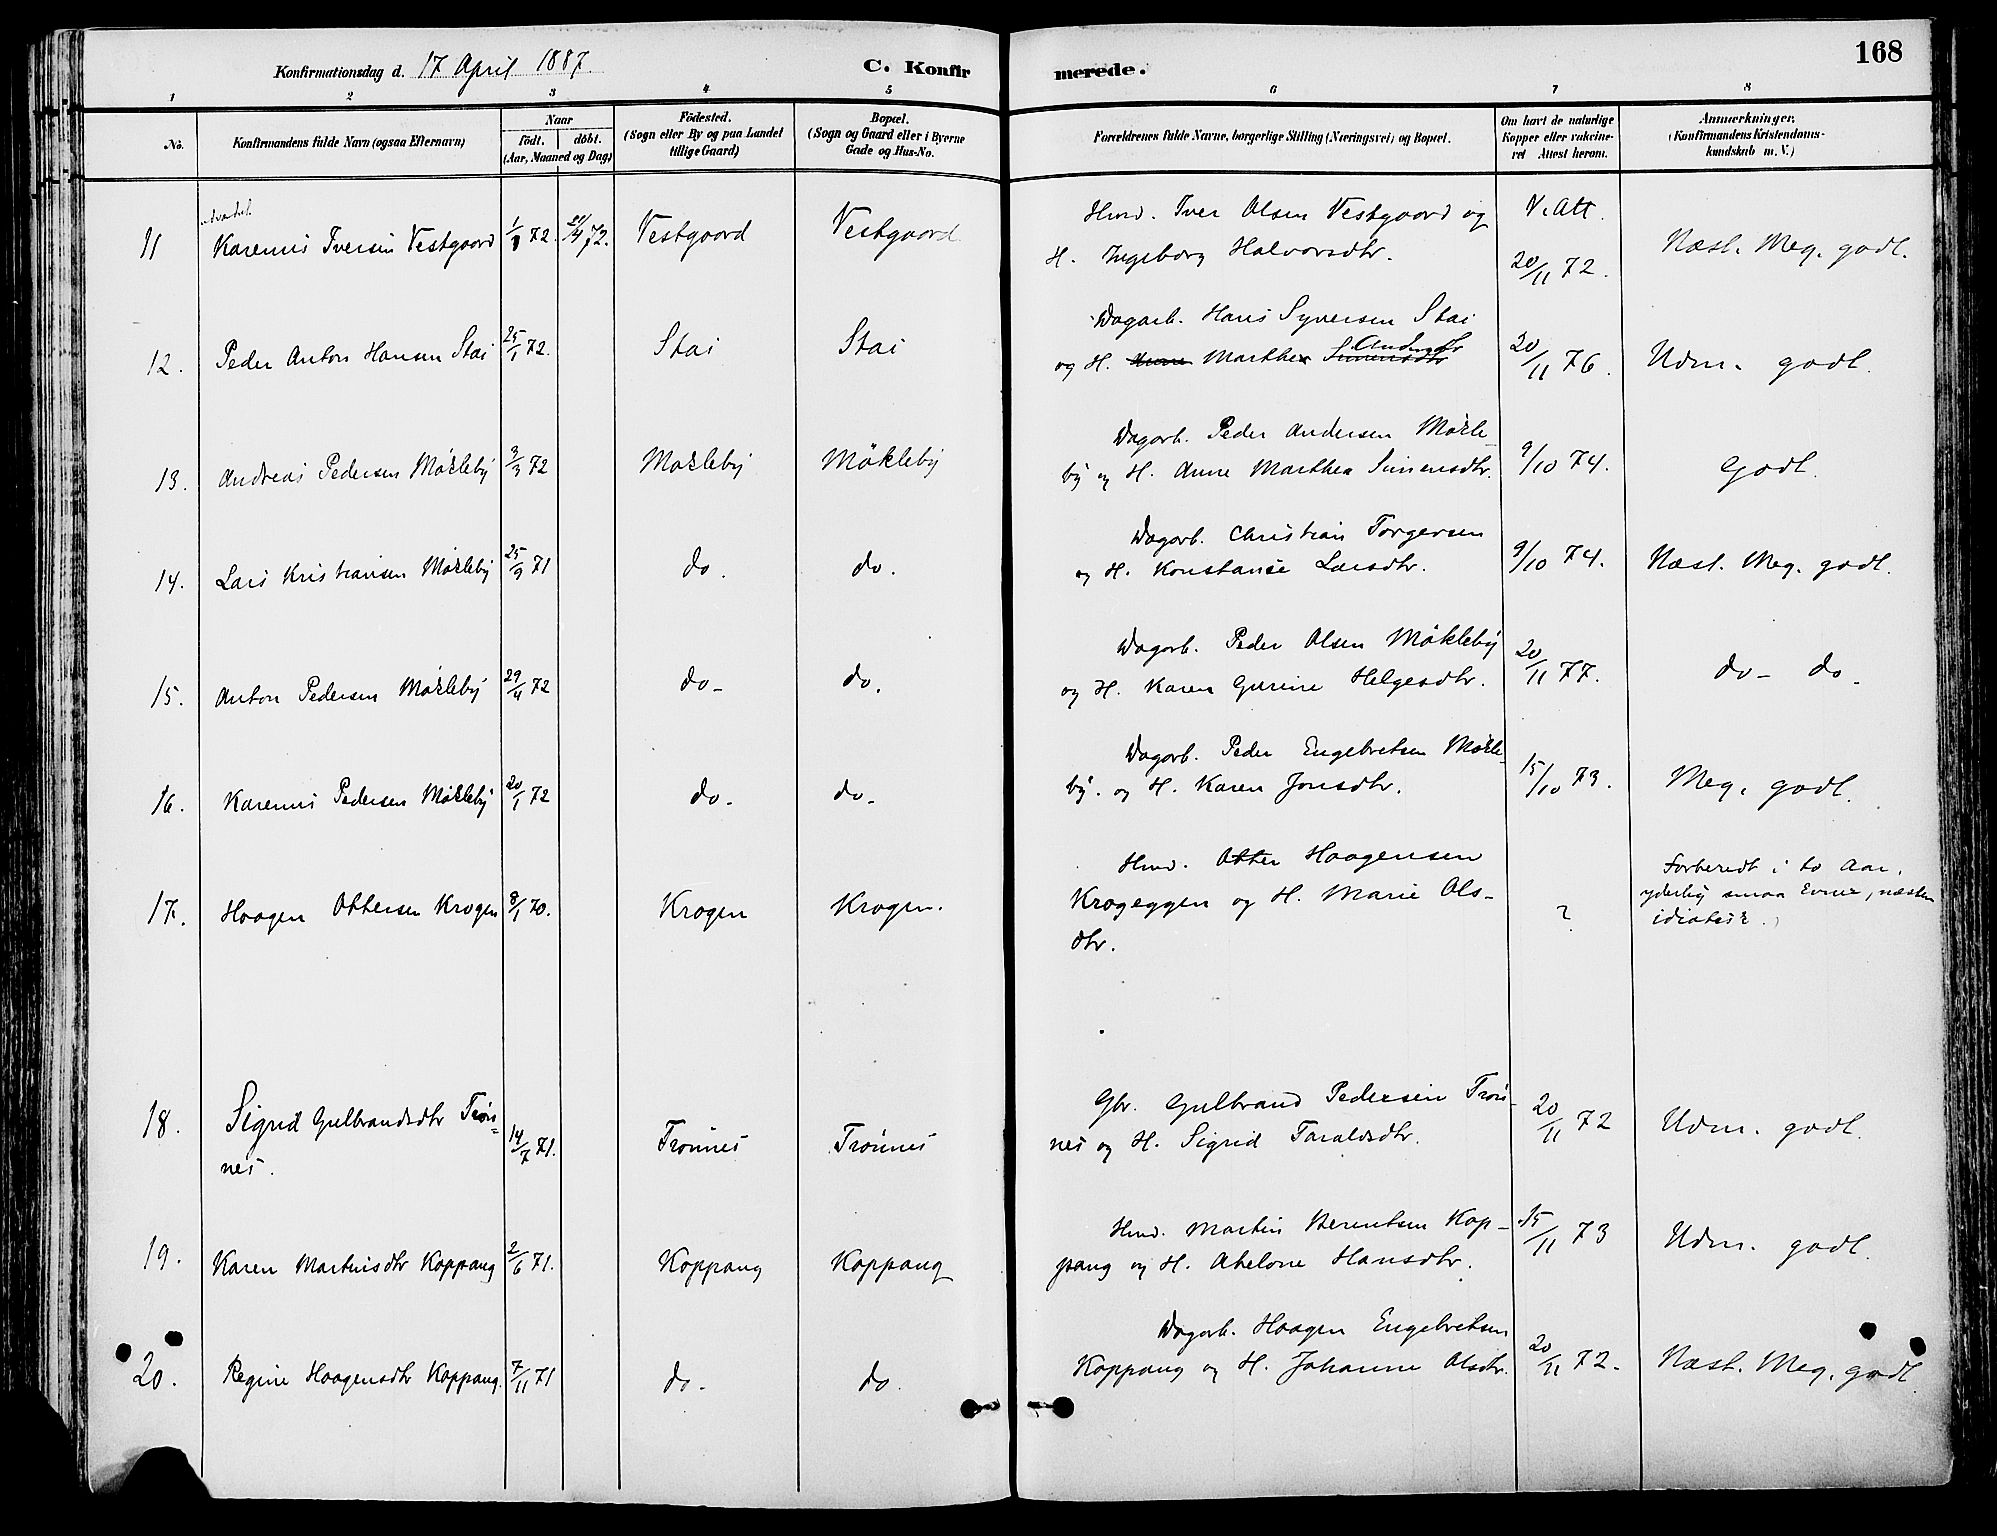 168
Konfirmationsdag d. 17 April 1887. C. Konfirmerede.
1 2 3 4 5 6 7 8
No. Konfirmandens fulde Navn (ogsaa Efternavn) Naar födt. döbt. (Aar, Maaned og Dag) Födested. (Sogn eller By og paa Landet tillige Gaard) Bopæl. (Sogn og Gaard eller i Byerne Gade og Hus-No. Forældrenes fulde Navne, borgerlige Stilling (Næringsvei) og Bopæl. Om havt de naturlige Kopper eller vakcineret Attest herom. Anmærkninger. (Konfirmandens Kristendomskundskab m. V.)
11 Karenus Iversen Vestgaard 1/1 72. 21/4 72. Vestgaard Vestgaard Hmd. Iver Olsen Vestgaard og V. Att.
H. Ingeborg Halvorsdtr. 20/11 72. Næst. Meg. godt.
12. Peder Anton Hansen Stai 25/1 72. Stai Stai Dagarb. Hans Syversen Stai
og H. Marthea Andersdtr 20/11 76. Udm. godt.
13. Andreas Pedersen Mökleby 3/3 72 Mökleby Mökleby Dagarb. Peder Andersen Mökle-
by og H. Anne Marthea Simensdtr. 9/10 74. Godt.
14. Lars Kristiansen Mökleby 25/9 71 do. do. Dagarb. Christian Torgersen
og H. Konstance Larsdtr. 9/10 74. Næst. Meg. godt.
15. Anton Pedersen Mökleby 29/4 72 do- do. Dagarb. Peder Olsen Mökleby
og H. Karen Gurine Helgesdtr. 20/11 77. do- do-
16. Karenus Pedersen Mökleby 20/1 72 do- do- Dagarb. Peder Engebretsen Mökle-
by. og H. Karen Jonsdtr. 15/10 73. Meg. godt.
17. Haagen Ottersen Krogen 8/1 70. Krogen Krogen. Hmd. Otter Haagensen
Krogeggen og H. Marie Ols-
dtr. ? Forberedt i to Aar.
yderlig smaa Evner, næsten
idiotisk.
18. Sigrid Gulbrandsdtr Trön-
nes. 14/7 71. Trönnes Trönnes Gbr. Gulbrand Pedersen Trön-
nes og H. Sigrid Taraldsdtr. 20/11 72 Udm. godt.
19. Karen Martinsdtr Koppang 2/6 71. Koppang Koppang Hmd. Martin Berentsen Kop-
pang og H. Abelone Hansdtr. 15/11 73 Udm. godt.
20. Regine Haagensdtr Koppang. 7/11 71 do. do. Dagarb. Haagen Engebretsen
Koppang og H. Johanne Olsdtr. 20/11 72. Næst. Meg. godt.